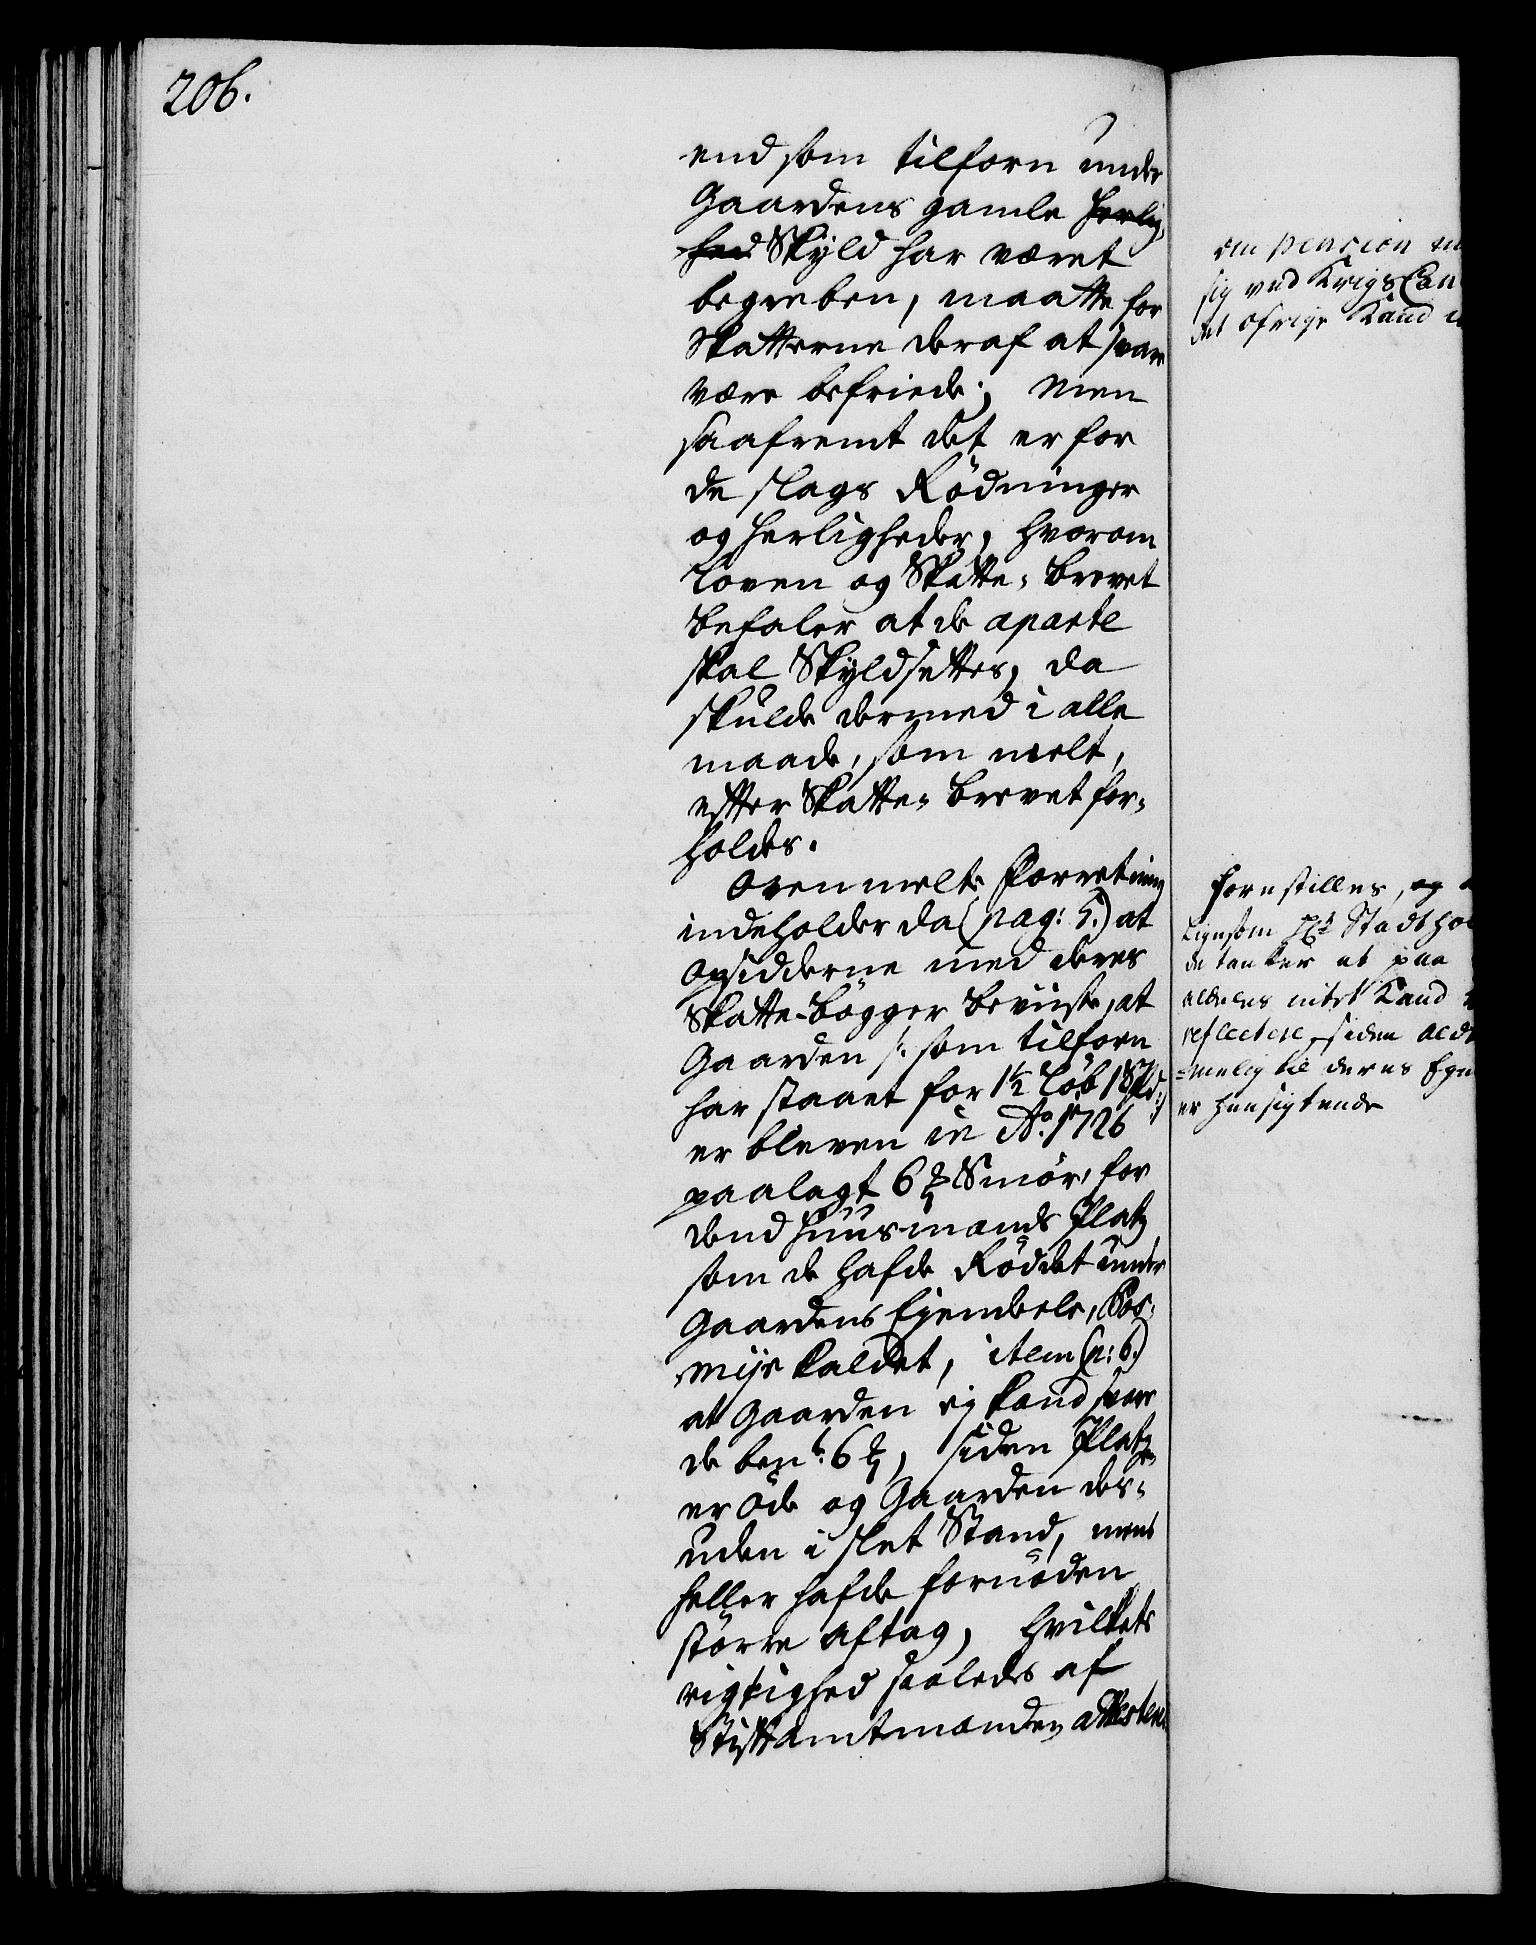 206.
end som tilforn under
Gaardens gamle Herlig-
hed Skyld har været
begreben, maatte for
Skatterne deraf at svare
være befriede; Men
saafremt det er for
de slags Rödninger
og Herligheder, hvorom
Loven og Skatte-Brevet
befaler at de aparte
skal Skyldsettes, da
skulde dermed i alle
maade, som melt,
efter Skatte-Brevet for-
holdes.
Ovenmelte Forretning
indeholder da (pag: 5.) at
Opsidderne med deres
Skatte-Bögger beviiste, at
Gaarden /: som tilforn
har staaet for 1½ Löb 1 Skd :/
er bleven in Ao. 1726
paalagt 6 ℔ Smör, for
dend Huusmands Platz
som de hafde Röddet under
Gaardens Ejendeele, Kos-
myr kaldet, item (p: 6.)
at Gaarden ej kand svare
de bente 6 ℔, siden Platzen
er öde og Gaarden des-
uden i slet Stand, mens
heller hafde fornöden
större aftag, hvilkets
rigtighed saaledes af
Stiftamtmanden attesteres
om pension
sig ved Krigs Can
det öfrige Kand
forestilles, og
Ligesom Hr Stadthol
de tanker at paa
aldeles intet Kand
reflectere, siden
-melig til deres
er hensigtende